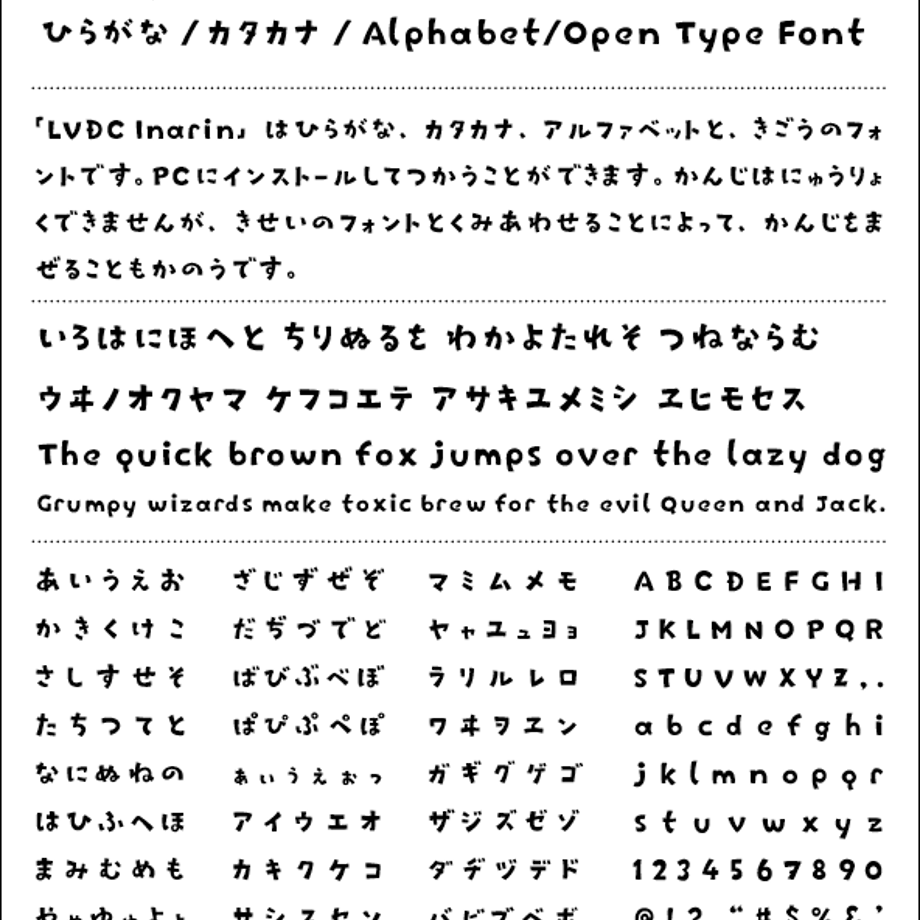 ひらがな / カタカナ / Alphabet/Open Type Font
「LVDC Inarin」 はひらがな、カタカナ、アルファベットと、きごうのフォ
ントです。PCにインストールしてつかうことができます。かんじはにゅうりょ
くできませんが、きせいのフォントとくみあわせることによって、かんじをま
ぜることもかのうです。
いろはにほへと ちりぬるを わかよたれそ つねならむ
ウヰノオクヤマ ケフコエテ アサキユメミシ ヱヒモセス
The quick brown fox jumps over the lazy dog
Grumpy wizards make toxic brew for the evil Queen and Jack.
あいうえお ざじずぜぞ マミムメモ ABCDEFGHI
かきくけこ だぢづでど ヤャユュヨョ JKLMNOPQR
さしすせそ ばびぶべぼ ラリルレロ STUVWXYZ,.
たちつてと ぱぴぷぺぽ ワヰヲヱン abcdefghi
なにぬねの ぁぃぅぇぉっ ガギグゲゴ jklmnopqr
はひふへほ アイウエオ ザジズゼゾ stuvwxyz
まみむめも カキクケコ ダヂヅデド 1234567890
やゃゆゅよょ サシスセソ バビブベボ @!?“#$%&’